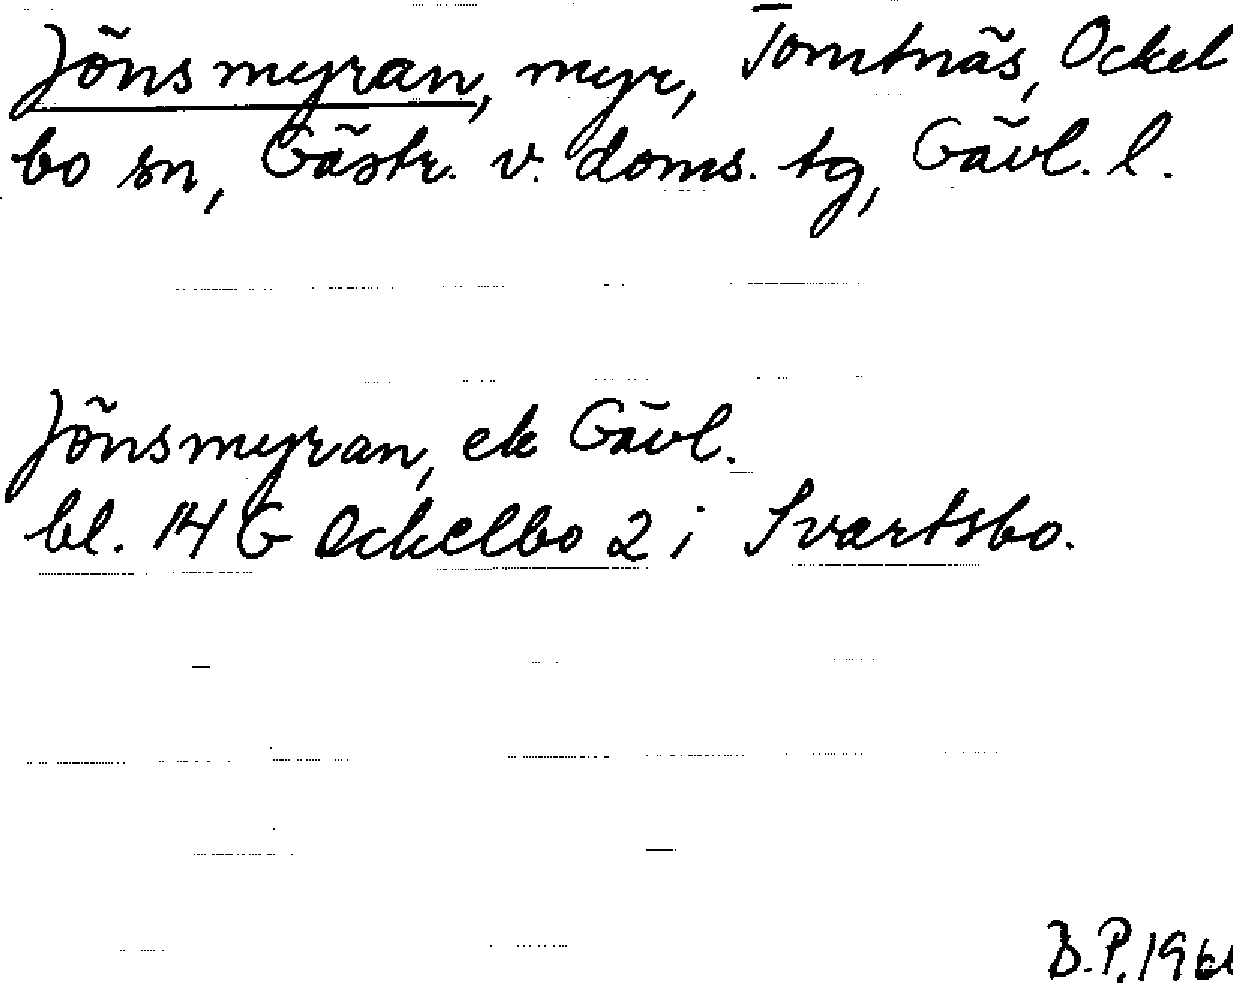 Jönsmyran, myr, Tomtnäs, Ockel
bo sn, Gästr. v. doms. tg, Gävl. l.
Jönsmyran, ek Gävl.
bl. 14 G Ockelbo 2 i Svartsbo.
B.P.